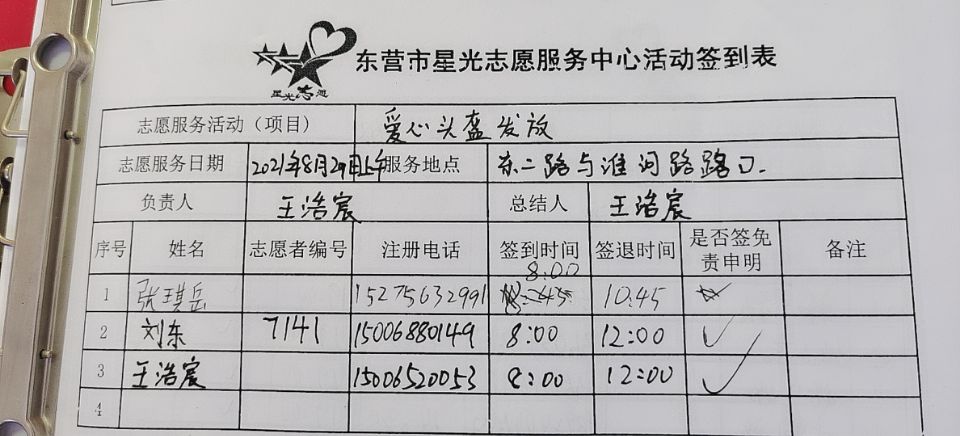 星光志愿
东营市星光志愿服务中心活动签到表
志愿服务活动（项目） 爱心头盔发放
志愿服务日期 2021年8月29日上午 服务地点 东二路与淮河路路口.
负责人 王浩宸 总结人 王浩宸
序号 姓名 志愿者编号 注册电话 签到时间 签退时间 是否签免责申明 备注
8:00
1 张琪岳 15275632991 8:45 10:45
2 刘东 7141 15006880149 8:00 12:00 ✓
3 王浩宸 15006520053 8:00 12:00 ✓
4